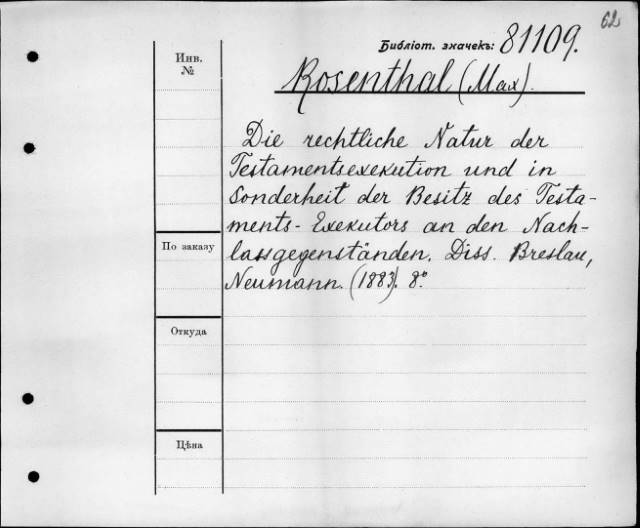 62
Библіот. значекъ: 81109.
Инв.
№
Rosenthal (Max).
Die rechtliche Natur der
Testamentsexekution und in
Sonderheit der Besitz des Testa-
ments-Exekutors an den Nach-
lassgegenständen. Diss. Breslau,
Neumann. (1883). 8º
По заказу
Откуда
Цѣна